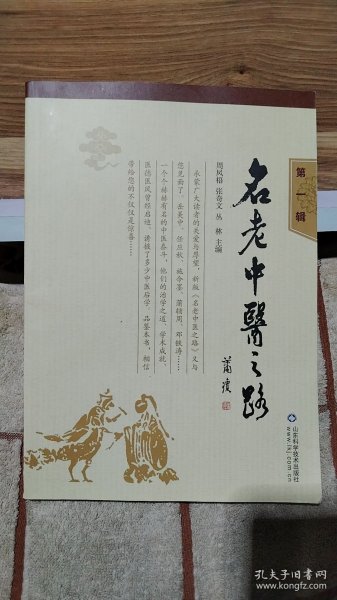 第一辑
名老中醫之路
萧璞
周凤梧 张奇文 丛林 主编
承蒙广大读者的关爱与厚望，新版《名老中医之路》又与
您见面了。岳美中、任应秋、施今墨、蒲辅周、邓铁涛……
一个个赫赫有名的中医泰斗，他们的治学之道、学术成就、
医德医风曾经启迪、诱掖了多少中医后学。品鉴本书，相信
带给您的不仅仅是惊喜……
山东科学技术出版社
www.lkj.com.cn
孔夫子旧书网
kongfz.com